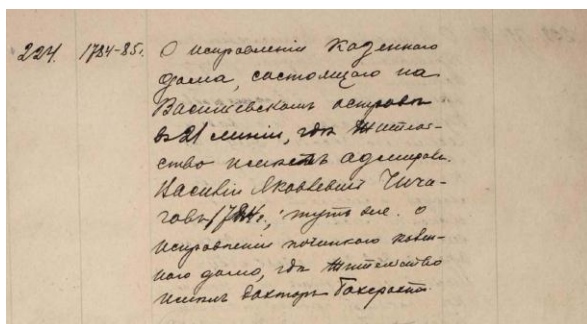 224. 1784-85г. О исправленіи казеннаго
дома, состоящаго на
Васильевскомъ островѣ
въ 21 линіи, гдѣ жительс-
ство имѣетъ адмиралъ
Василій Яковлевичъ Чича-
говъ 1784г., тутъ же о
исправленіи починкою казен-
наго дома, гдѣ жительство
имѣлъ докторъ